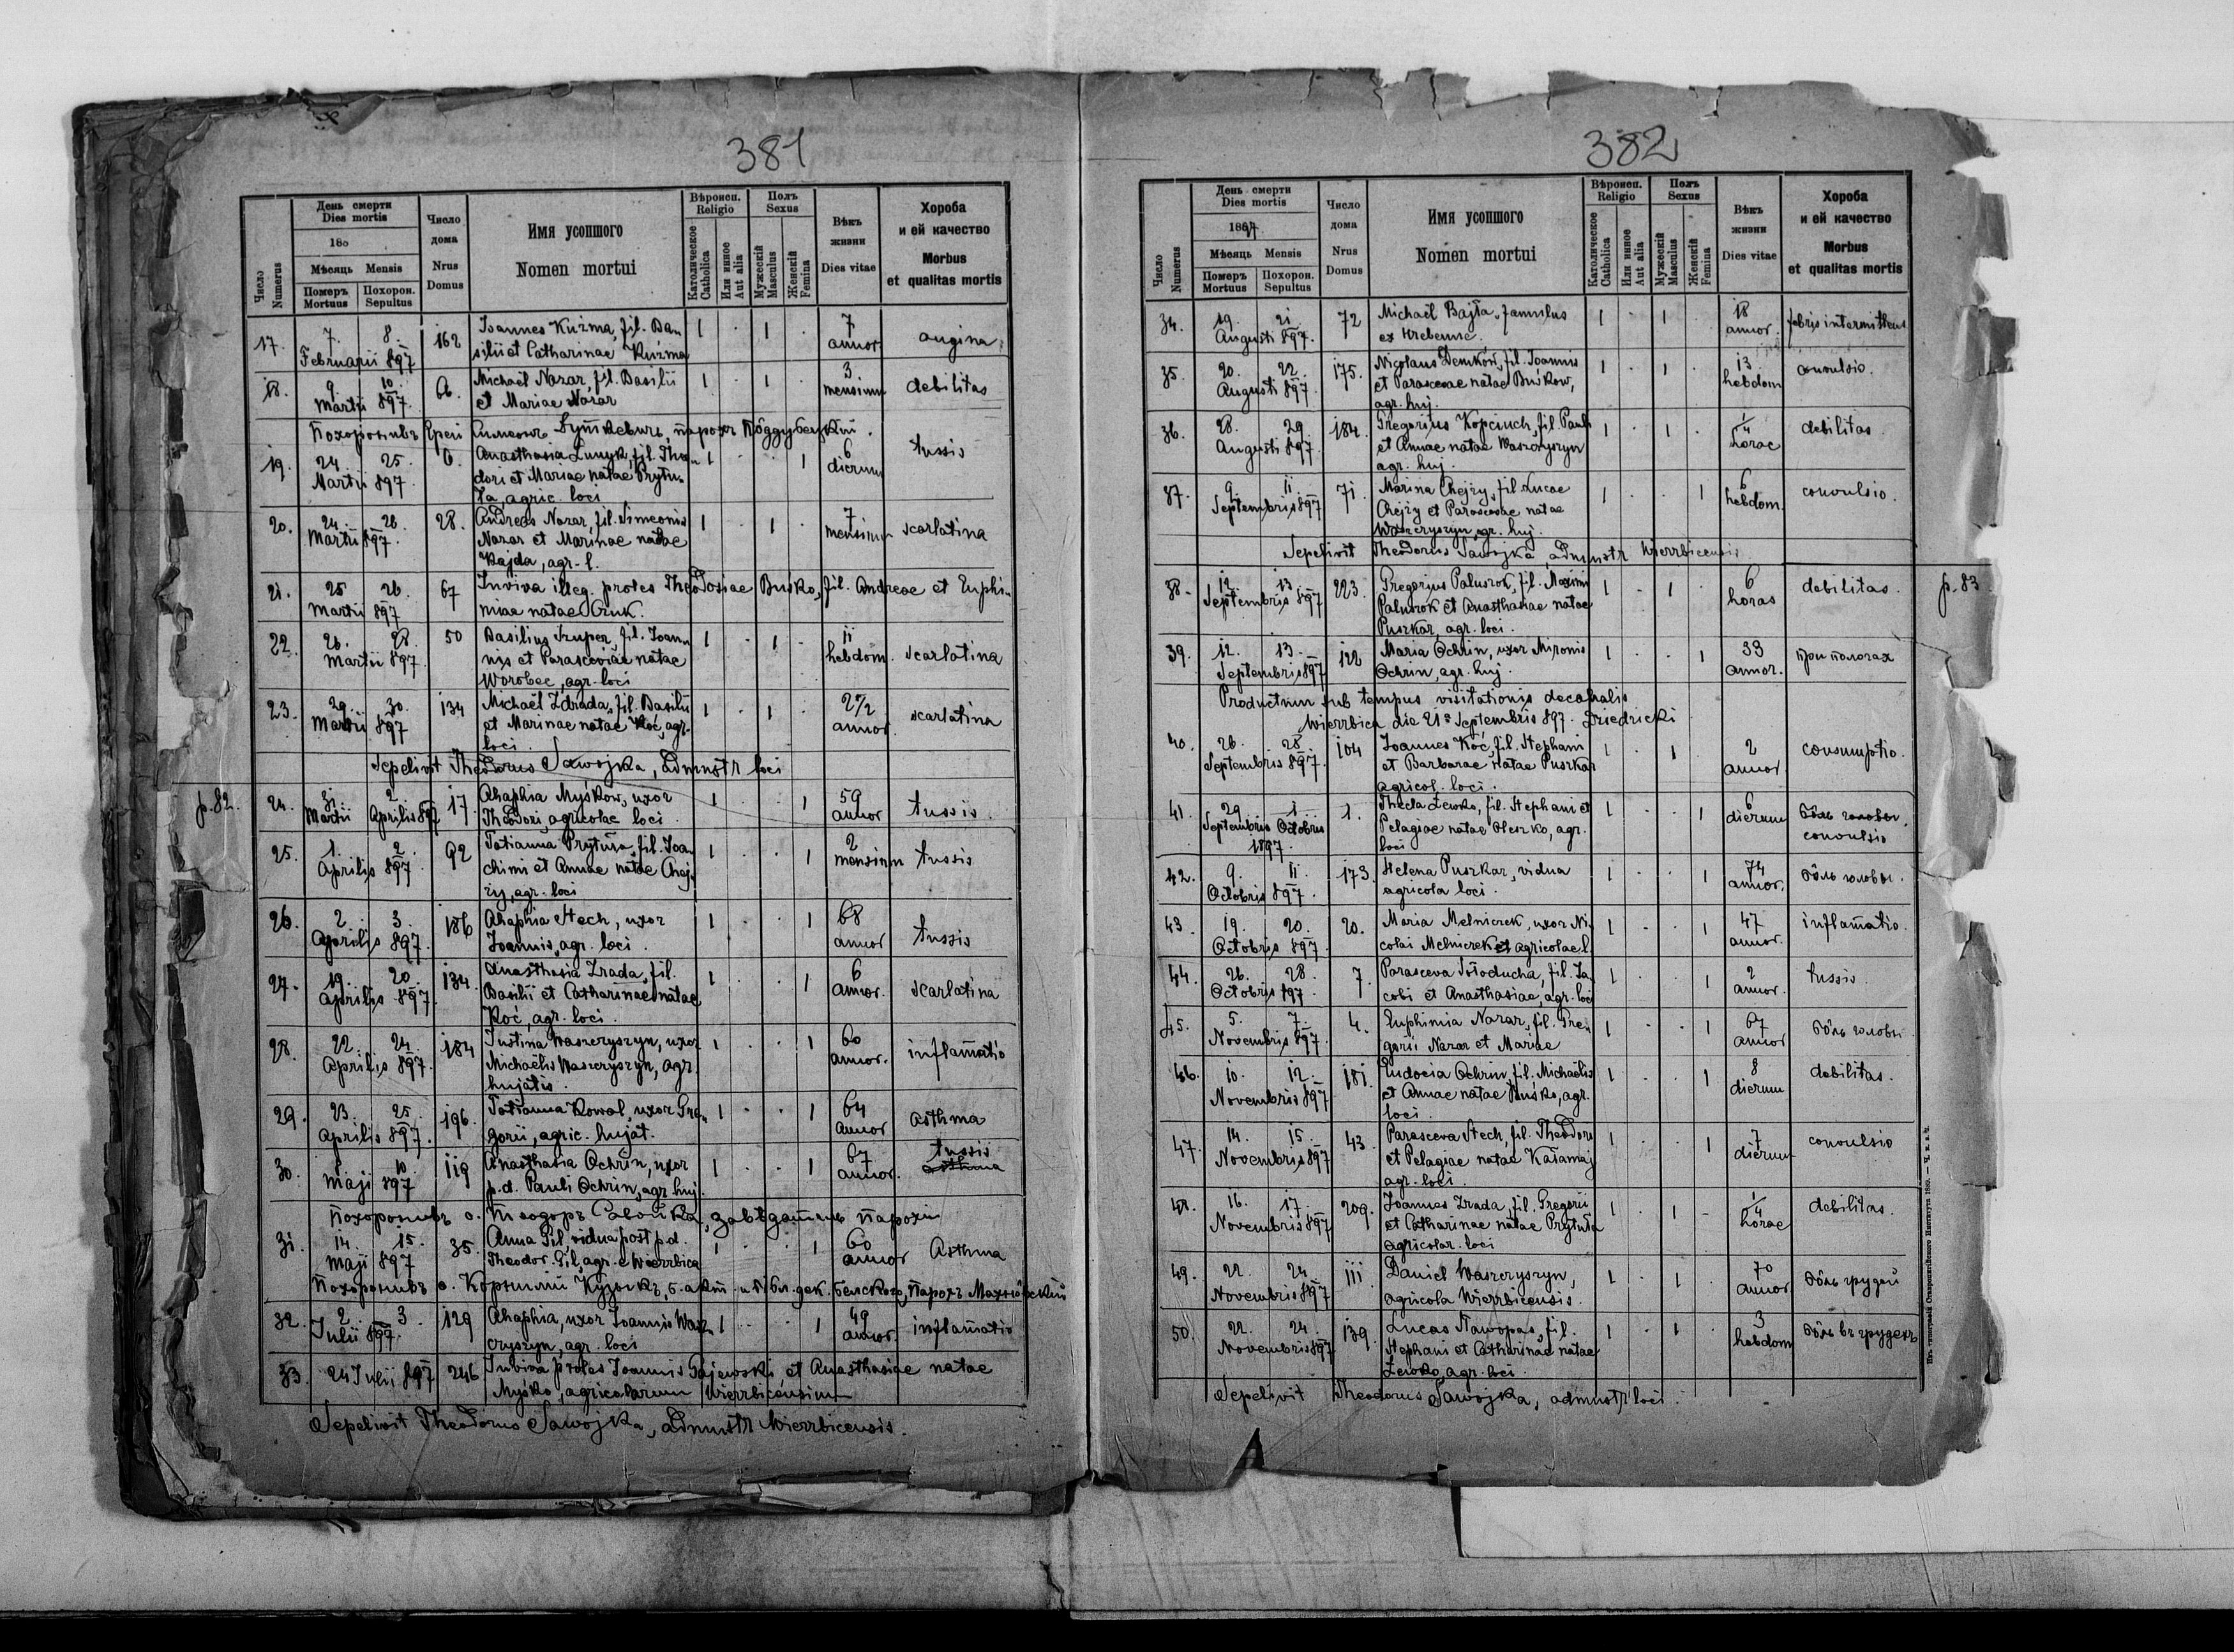 381
Число Numerus
День смерти
Dies mortis
180
Мѣсяць Mensis
Померъ Mortuus
Похорон. Sepultus
Число дома
Nrus Domus
Имя усопшого
Nomen mortui
Вѣроисп. Religio
Католическое Catholica
Или инное Aut alia
Полъ Sexus
Мужескій Masculus
Женскій Femina
Вѣкъ жизни
Dies vitae
Хороба и ей качество
Morbus et qualitas mortis
17. 7. 8. Februarii 897 162 Joannes Kuźma, fil. Ba„ 1 . 1 . 7 annor angina
silii et Catharinae Kuźma
18. 9. 10. Martii 897. 66. Michaël Nazar, fil. Basilii 1 . 1 . 3 mensium debilitas
et Mariae Nazar
Похоронивъ Ерей Симеонъ парохъ
19. 24. 25. Martii 897. 6. Anasthasia Lunyk, fil. Theo„ 1 . . 1 6 dierum tussis
dori et Mariae natae Prytu„
ła, agric. loci
20. 24. 26. Martii 897. 28. Andreas Nazar, fil. Simeonis 1 . 1 . 7 mensium scarlatina
Nazar et Marinae natae
Kajda, agr. l.
21. 25 26. Martii 897 67 Inviva illeg. proles Theodosiae Buśko, fil. Andreae et Euphi„
miae natae Cruk.
22. 26. 28. Martii 897. 50 Basilius Kruper, fil. Joann 1 . 1 . 11 hebdom. scarlatina
nis et Parasceviae natae
Worobec, agr. loci
23. 29. 30. Martii 897 134 Michaël Zdrada, fil. Basilii 1 . 1 . 2 1/2 annor. scarlatina
et Marinae natae Koć, agr.
loci.
Sepelivit Theodorus Sawojka, admnstr loci
p. 82.
24. 31 2. Martii Aprilis 897 17. Ahaphia Myśkow, uxor 1 . . 1 59 annor tussis.
Theodori, agricolae loci.
25. 1. 2. Aprilis 897. 92 Tatianna Prytuła, fil. Joa„ 1 . . 1 2 mensium tussis
chimi et Annae natae Chej„
ry, agr. loci
26. 2 3. Aprilis 897. 186 Ahaphia Stech, uxor 1 . . 1 68 annor tussis
Joannis, agr. loci.
27. 19. 20. Aprilis 897. 134. Anasthasia Zrada, fil. 1 . . 1 6 annor. scarlatina
Basilii et Catharinae natae
Koć, agr. loci.
28. 22. 24. Aprilis 897. 184 Justina Waszczyszyn, uxor 1 . . 1 60 annor. inflam̄atio
Michaëlis Waszczyszyn, agr.
hujatis.
29. 23. 25. Aprilis 897. 196. Tatianna Kowal, uxor Gre„ 1 . . 1 64 annor asthma
gorii, agric. hujat.
30. 8. 10. Maji 897 119 Anasthasia Ochrin, uxor 1 . . 1 67 annor. tussis
p.d. Pauli Ochrin, agr. huj. asthma
Похоронивъ о. Теодоръ Савойка, завѣдатель парохіи
31. 14 15. Maji 897 35. Anna Gil, vidua post p.d. 1 . . 1 60 annor Asthma
Theodor. Gil, agr. e Wierzbica
Похоронивъ о. Корнилій Кузыкъ, дек. Белскій, парохъ
32. 2. 3. Julii 897. 129 Ahaphia, uxor Joannis Wasz„ 1 . . 1 49 annor. inflam̄atio
czyszyn, agr. loci
33. 24 Julii 897 246 Inviva proles Joannis Gajewski, et Anasthasiae natae
Myśko, agricolarum Wierzbicensium
Sepelivit Theodorus Sawojka, admnstr Wierzbicensis.
382
Число Numerus
День смерти
Dies mortis
1897.
Мѣсяць Mensis
Померъ Mortuus
Похорон. Sepultus
Число дома
Nrus Domus
Имя усопшого
Nomen mortui
Вѣроисп. Religio
Католическое Catholica
Или инное Aut alia
Полъ Sexus
Мужескій Masculus
Женскій Femina
Вѣкъ жизни
Dies vitae
Хороба и ей качество
Morbus et qualitas mortis
34. 19. 21. Augusti 897. 72 Michaël Bajła, famulus 1 . 1 . 18 annor. febris intermittens
ex Hrebenne.
35. 20. 22. Augusti 897. 175. Nicolaus Demków, fil. Joannis 1 . 1 . 13. hebdom convulsio.
et Parascevae natae Buśkow,
agr. huj.
36. 28. 29. Augusti 897. 184. Gregorius Kopciuch, fil. Pauli 1 . 1 . 1/4 horae debilitas.
et Annae natae Waszczyszyn
agr. huj.
37. 9. 11. Septembris 897 71. Marina Chejry, fil. Lucae 1 . . 1 6 hebdom. convulsio.
Chejry et Parascevae natae
Waszczyszyn, agr. huj.
Sepelivit Theodorus Sawojka, admnstr Wierzbicensis
38. 12. 13. Septembris 897 223. Gregorius Paluszok, fil. Maximi 1 . 1 . 6 horas debilitas.
Paluszok et Anasthasiae natae
Puszkar, agr. loci.
p. 83.
39. 12. 13. Septembris 897 122 Maria Ochrin, uxor Mironis 1 . . 1 33 annor. при пологах
Ochrin, agr. huj.
Productum sub tempus visitationis decanalis
Wierzbica die 21° Septembris 897. Driedricki
40. 26. 28. Septembris 897. 104 Joannes Koć, fil. Stephani 1 . 1 2 annor consumptio.
et Barbarae natae Puszkar
agricol. loci.
41. 29. 1. Septembris Octobris 1897. 1. Thecla Lewko, fil. Stephani et 1 . . 1 6 dierum бôль головы.
Pelagiae natae Oleszko, agr. convulsio
loci
42. 9. 11. Octobris 897. 173. Helena Puszkar, vidua 1 . . 1 74 annor. бôль головы.
agricola loci.
43. 19. 20. Octobris 897. 20. Maria Melniczek, uxor Ni„ 1 . . 1 47 annor. inflam̄atio.
colai Melniczek et agricolae l.
44. 26. 28. Octobris 897. 7. Parasceva Sołoducha, fil. Ja„ 1 . 1 2 annor. tussis.
cobi et Anasthasiae, agr. loci
45. 5. 7. Novembris 897. 4. Euphimia Nazar, fil. Gre„ 1 . . 1 67 annor бôль головы.
gorii Nazar et Mariae
46. 10. 12. Novembris 897 181. Eudocia Ochrin, fil. Michaëlis 1 . . 1 8 dierum debilitas.
et Annae natae Buśko, agr.
loci.
47. 14. 15. Novembris 897 43. Parasceva Stech, fil. Theodori 1 . . 1 7 dierum convulsio
et Pelagiae natae Kałamaj
agr. loci.
48. 16. 17. Novembris 897 209. Joannes Zrada, fil. Gregorii 1 . 1 - 1/4 horae debilitas.
et Catharinae natae Prytuła
agricolar. loci
49. 22. 24. Novembris 897 111 Daniel Waszczyszyn, 1 . 1 . 70 annor. бôль грудей
agricola Wierzbicensis.
50. 22. 24. Novembris 897 139. Lucas Pawopas, fil. 1 . 1 . 3 hebdom бôль въ грудехъ
Stephani et Catharinae natae
Lewko, agr. loci.
Sepelivit Theodorus Sawojka, admnstr loci.
Изъ типографіи Ставропигійского Института 1880.